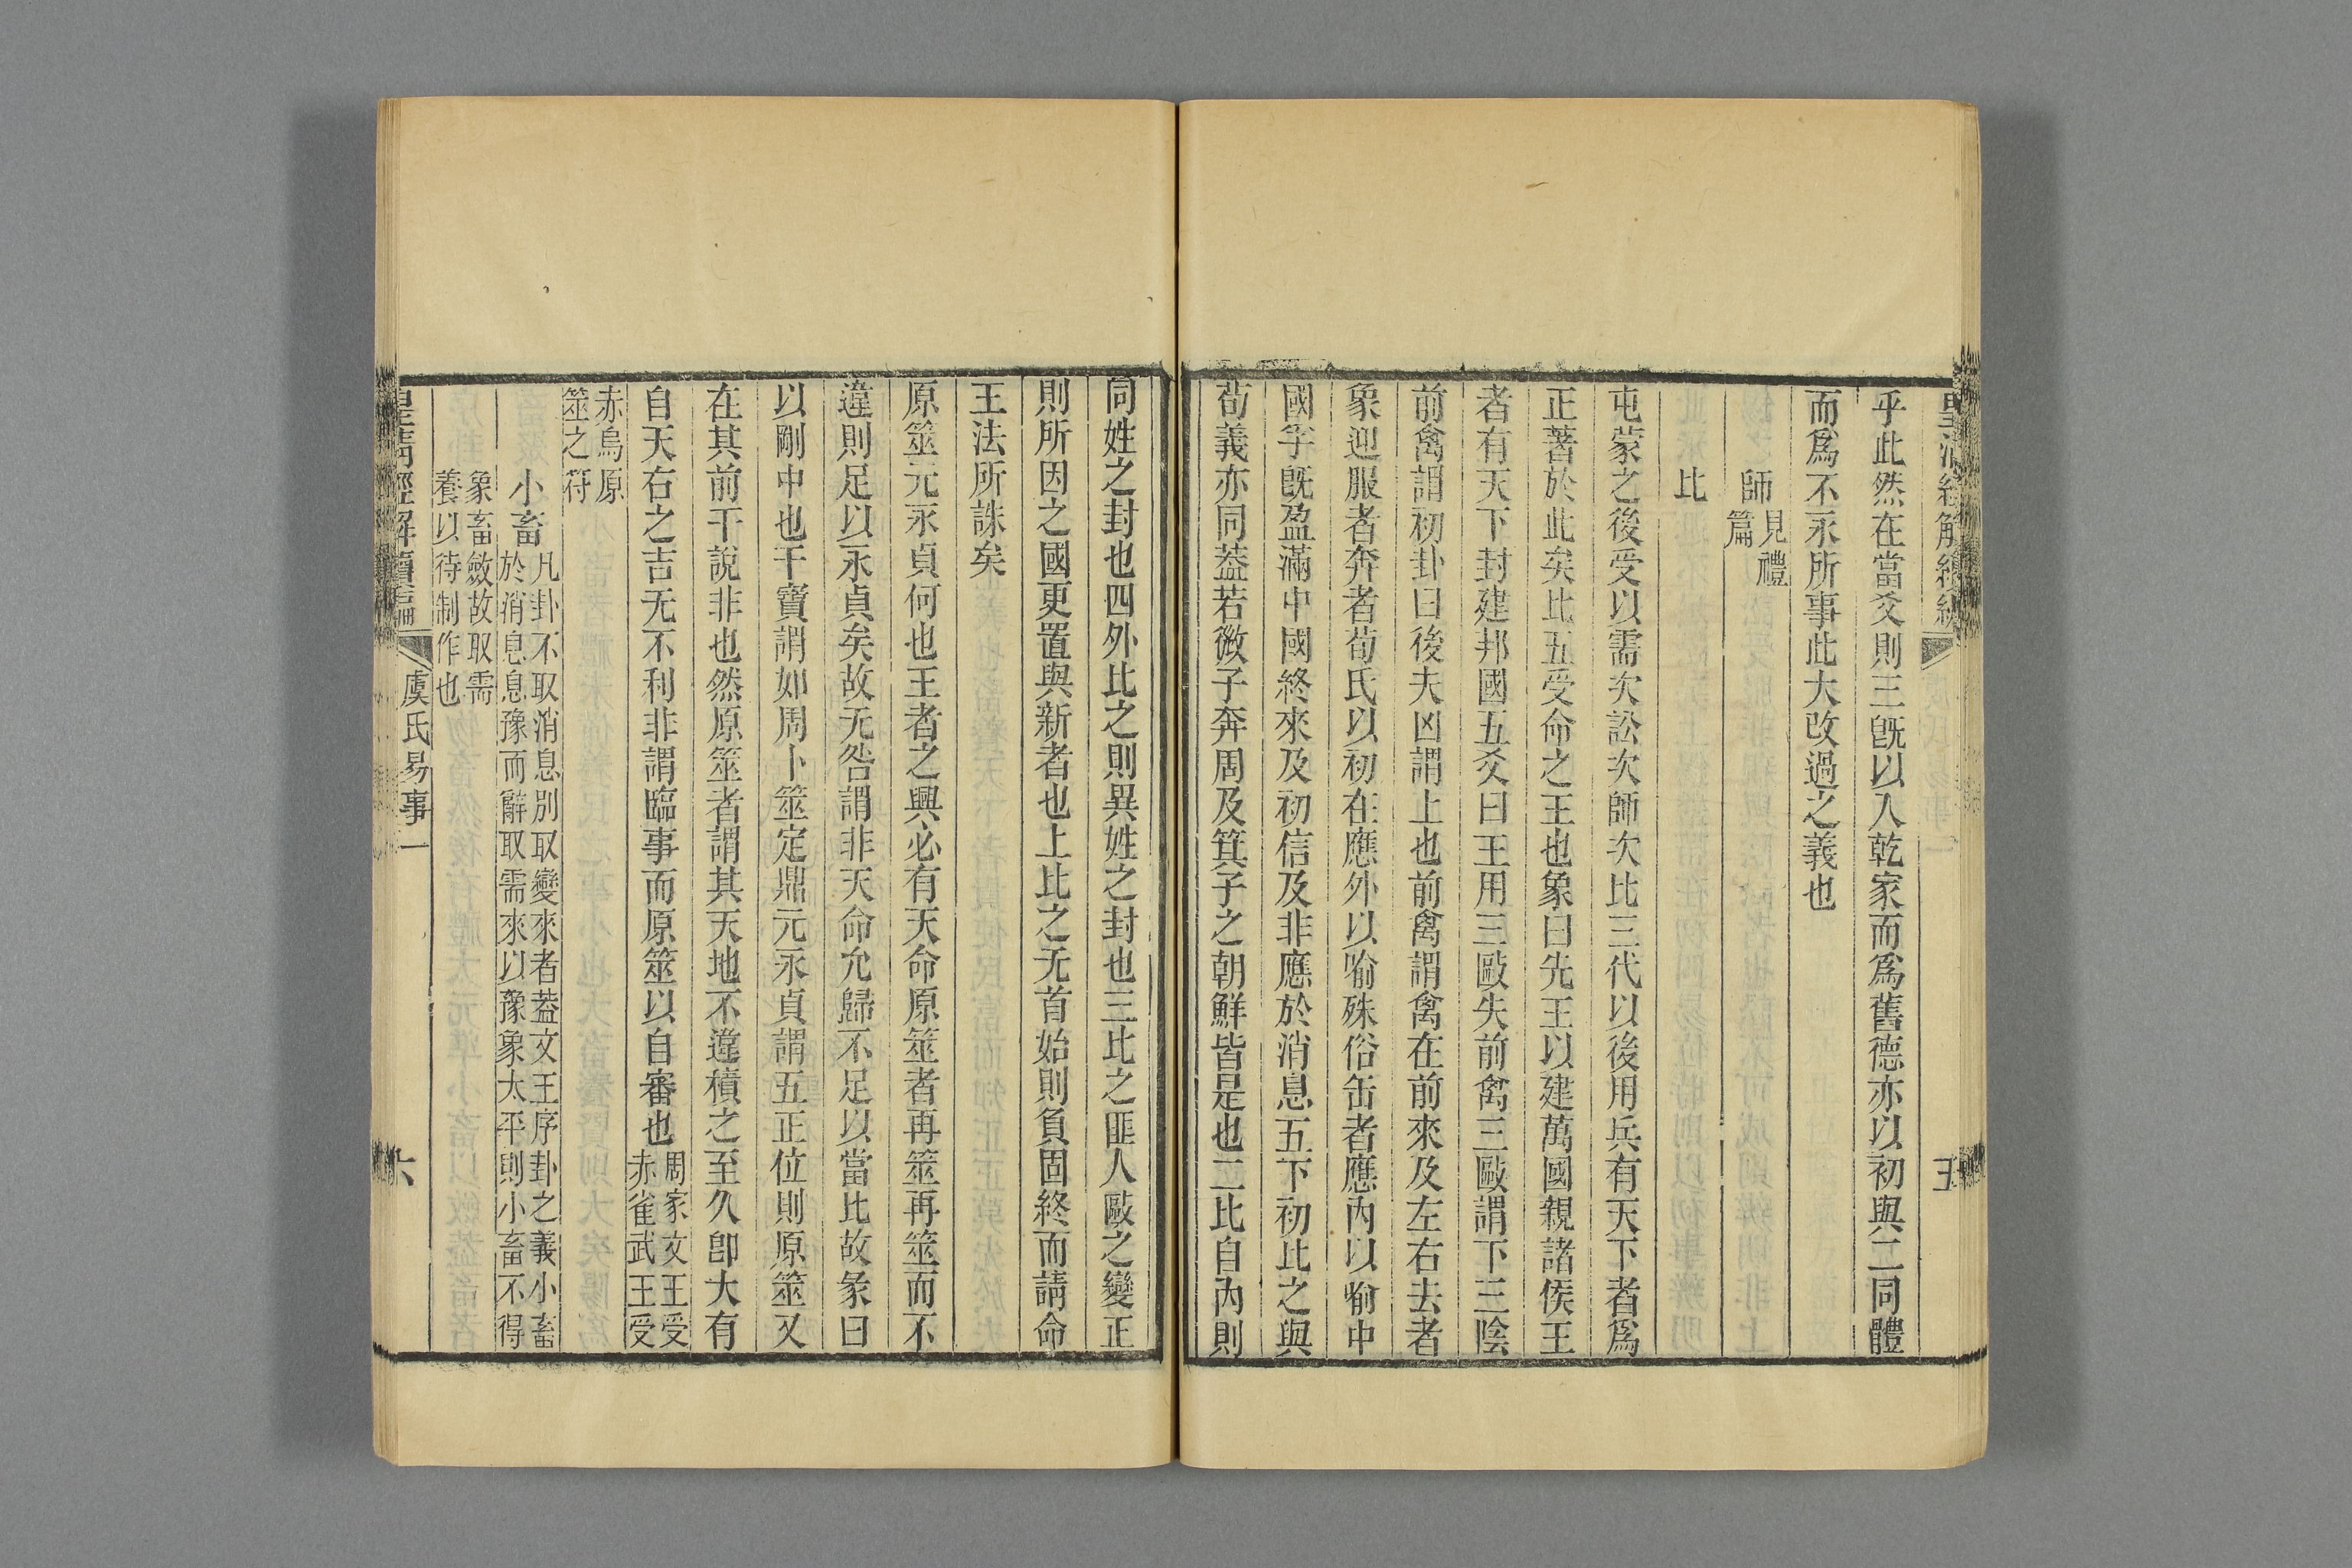 乎此然在當爻則三旣以入乾家而爲舊德亦以初與二同體
而爲不永所事此大改過之義也
師見禮篇
比
屯蒙之後受以需次訟次師次比三代以後用兵有天下者爲
正著於此矣比五受命之王也象曰先王以建萬國親諸侯王
者有天下封建邦國五爻曰王用三敺失前禽三敺謂下三陰
前禽謂初卦曰後夫凶謂上也前禽謂禽在前來及左右去者
象迎服者奔者荀氏以初在應外以喻殊俗缶者應內以喻中
國孚旣盈滿中國終來及初信及非應於消息五下初比之與
荀義亦同葢若微子奔周及箕子之朝鮮皆是也二比自內則
同姓之封也四外比之則異姓之封也三比之匪人敺之變正
則所因之國更置與新者也上比之无首始則負固終而請命
王法所誅矣
原筮元永貞何也王者之興必有天命原筮者再筮再筮而不
違則足以永貞矣故无咎謂非天命允歸不足以當比故彖曰
以剛中也干寶謂如周卜筮定鼎元永貞謂五正位則原筮又
在其前干說非也然原筮者謂其天地不違積之至久卽大有
自天右之吉无不利非謂臨事而原筮以自審也周家文王受
赤雀武王受
赤烏原
筮之符
小畜凡卦不取消息別取變來者葢文王序卦之義小畜
於消息息豫而辭取需來以豫象太平則小畜不得
象畜斂故取需
養以待制作也
虞氏易事一
六